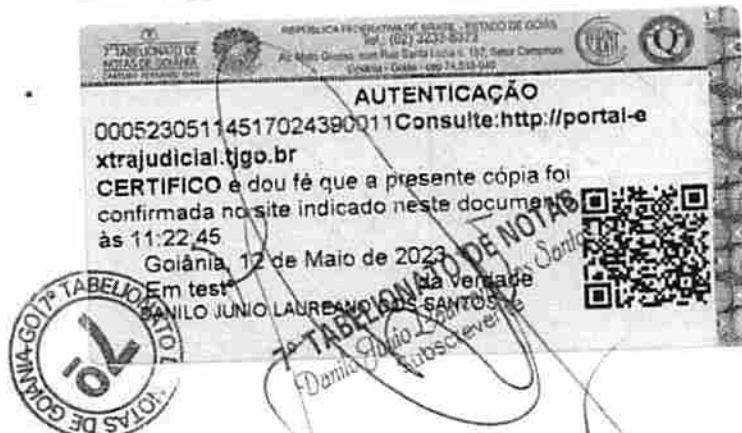 7º TABELIONATO DE
NOTAS DE GOIÂNIA
REPÚBLICA FEDERATIVA DO BRASIL - ESTADO DE GOIÁS
Tel.: (62) 3233-8373
AUTENTICAÇÃO
00052305114517024390011Consulte:http://portal-e
xtrajudicial.tjgo.br
CERTIFICO e dou fé que a presente cópia foi
confirmada no site indicado neste document
às 11:22,45
Goiânia, 12 de Maio de 2023
Em testº da verdade
DANILO JUNIO LAUREANO DOS SANTOS
7º TABELIONATO DE NOTAS
Danilo Junio Santos
Subscrevente
7º TABELIONATO
NOTAS DE GOIANIA-GO